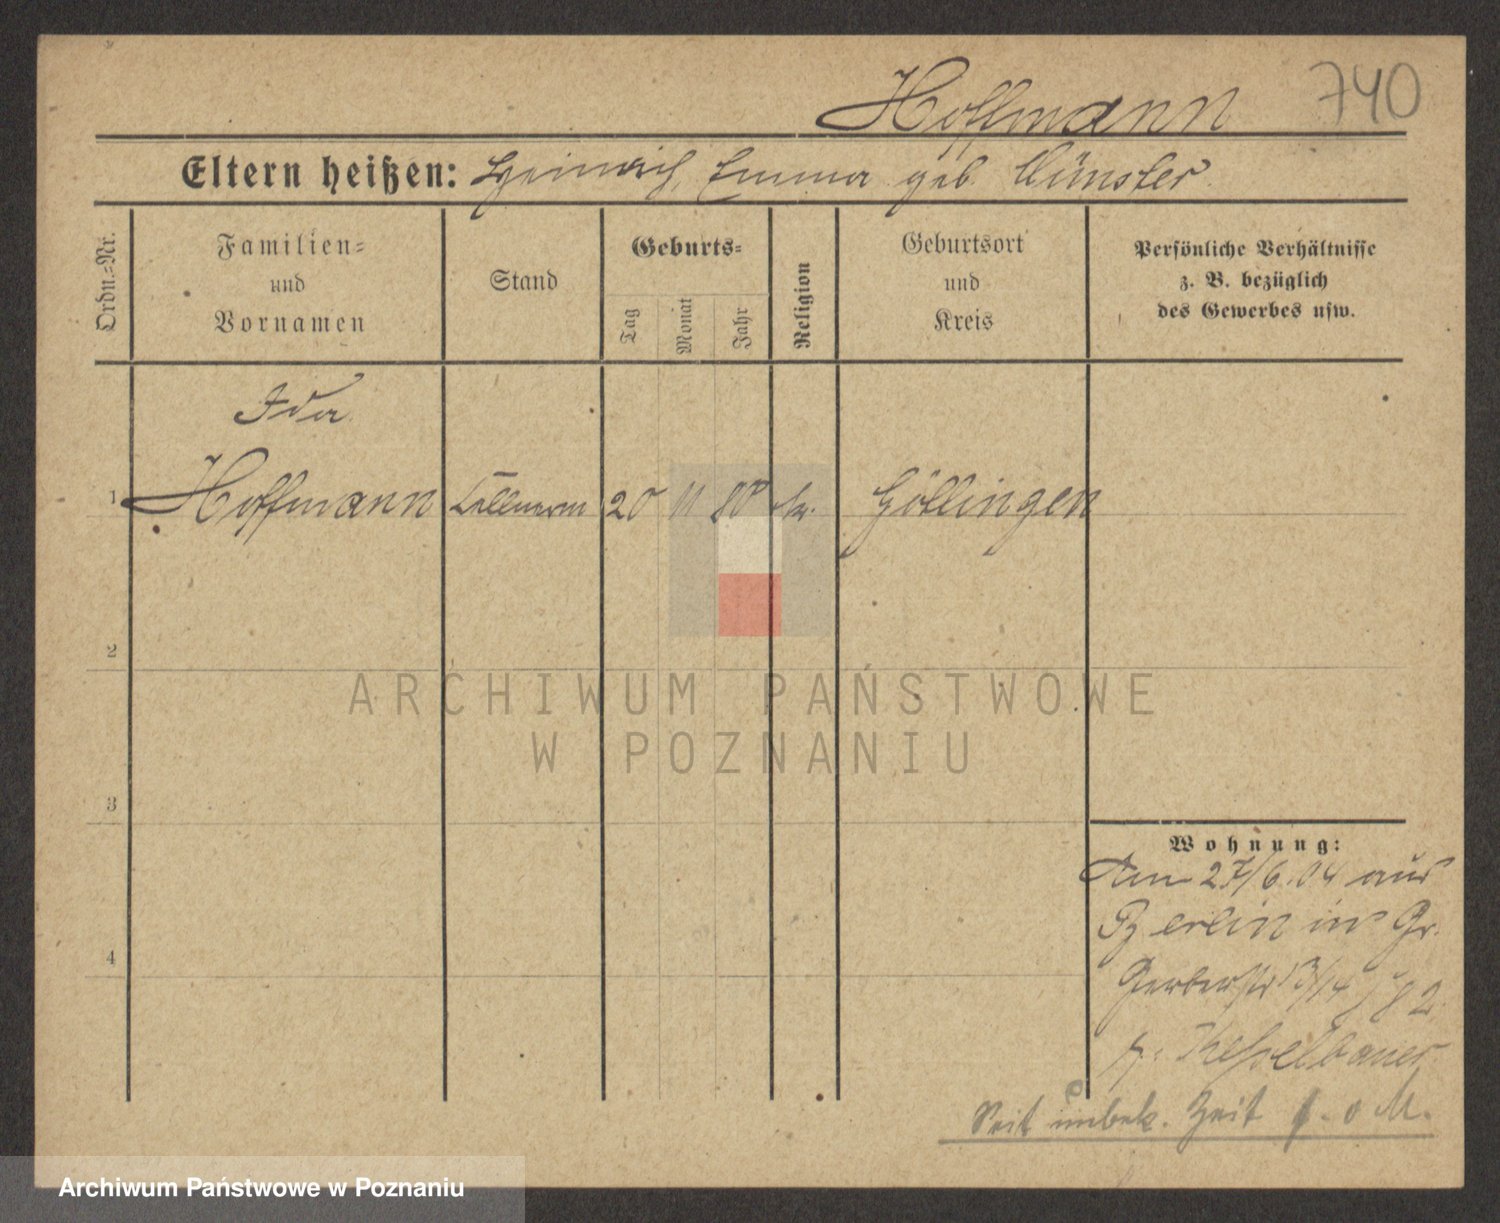 Hoffmann 740
Eltern heißen: Heinrich, Emma geb. Münster.
Ordn.=Nr.
Familien=
und
Vornamen
Stand
Geburts=
Tag
Monat
Jahr
Religion
Geburtsort
und
Kreis
Persönliche Verhältnisse
z. B. bezüglich
des Gewerbes usw.
Ida
1 Hoffmann Kellnerin 20 11 80 Göttingen
2
3
4
Wohnung:
Am 27/6.04 aus
Berlin in Gr.
Gerberstr 13/14
Kesselbauer
Seit unbek. Zeit
ARCHIWUM PAŃSTWOWE
W POZNANIU
Archiwum Państwowe w Poznaniu